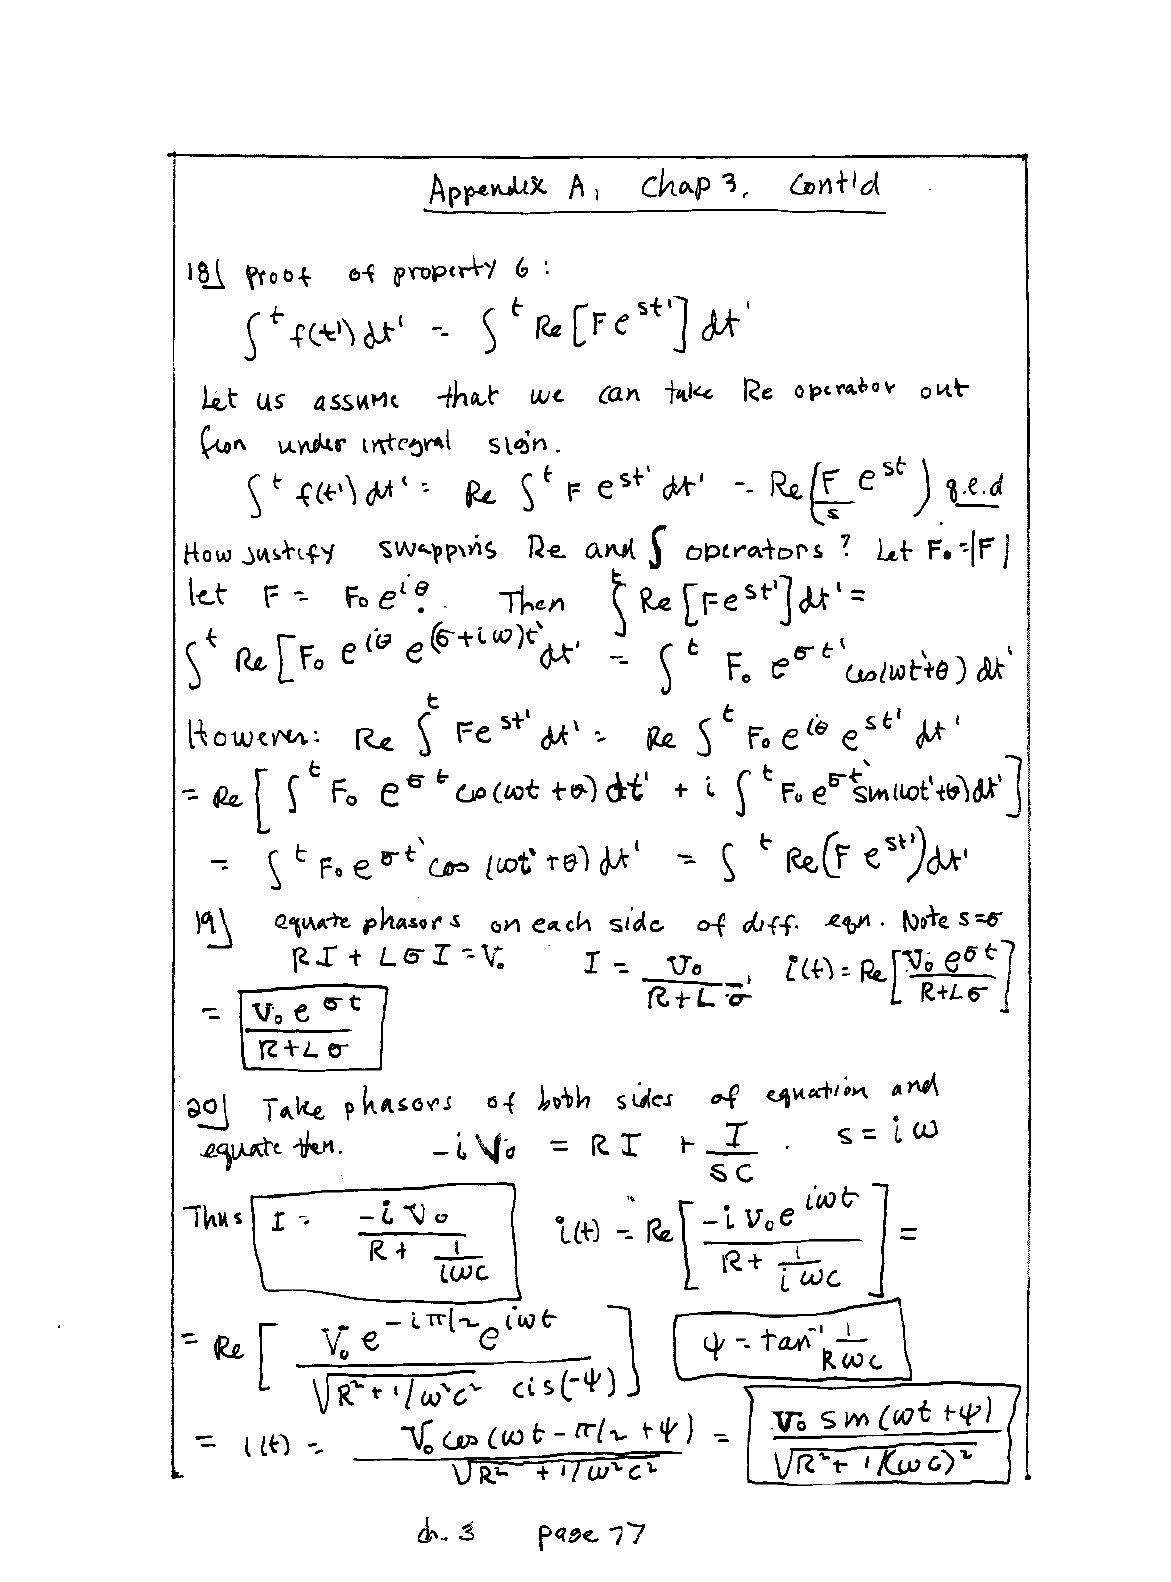 Appendix A, Chap 3, Cont'd
18] Proof of property 6 :
∫^t f(t') dt' = ∫^t Re [F e^{st'}] dt'
Let us assume that we can take Re operator out
from under integral sign.
∫^t f(t') dt' = Re ∫^t F e^{st'} dt' = Re (F/s e^{st}) q.e.d
How justify swapping Re and ∫ operators? Let F₀ = |F|
let F = F₀ e^{iθ}. Then ∫^t Re [F e^{st'}] dt' =
∫^t Re [F₀ e^{iθ} e^{(σ+iω)t'} dt' = ∫^t F₀ e^{σt'} cos(ωt'+θ) dt'
However: Re ∫^t F e^{st'} dt' = Re ∫^t F₀ e^{iθ} e^{st'} dt'
= Re [ ∫^t F₀ e^{σt} cos(ωt +θ) dt' + i ∫^t F₀ e^{σt'} sin(ωt'+θ) dt' ]
= ∫^t F₀ e^{σt'} cos (ωt' +θ) dt' = ∫^t Re(F e^{st'}) dt'
19] equate phasors on each side of diff. eqn. Note s=σ
RI + LσI = V₀ I = V₀/(R+Lσ), i(t) = Re [V₀ e^{σt}/(R+Lσ)]
= V₀ e^{σt}/(R+Lσ)
20] Take phasors of both sides of equation and
equate them. -i V₀ = RI + I/(sC) . s = iω
Thus I = -i V₀/(R + 1/(iωC)) i(t) = Re [-i V₀ e^{iωt}/(R + 1/(iωC))] =
= Re [V₀ e^{-iπ/2} e^{iωt}/(√(R²+1/ω²C²) cis(-ψ))] ψ = tan⁻¹ 1/(RωC)
= i(t) = V₀ cos(ωt - π/2 + ψ)/√(R² + 1/ω²C²) = V₀ sin(ωt+ψ)/√(R²+1/(ωC)²)
ch. 3 page 77